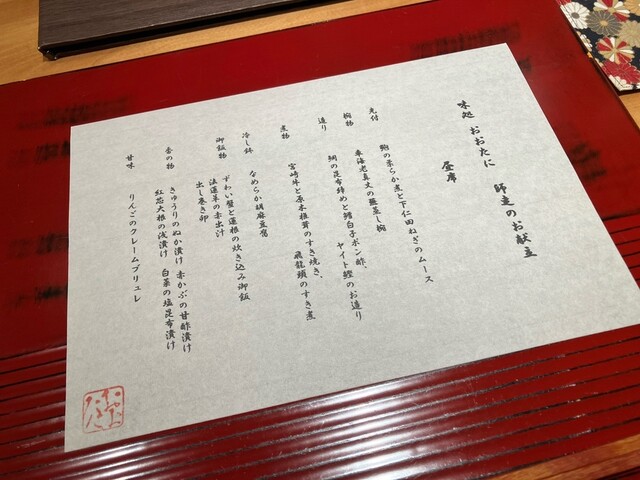 味処 おおたに 師走のお献立
昼席
先付
鮑の柔らか煮と下仁田ねぎのムース
椀物
車海老真丈の蕪蒸し椀
造り
鯛の昆布締めと鱈白子ポン酢、
ヤイト鰹のお造り
煮物
宮崎牛と原木椎茸のすき焼き、
飛龍頭のすき煮
冷し鉢
なめらか胡麻豆腐
御飯物
ずわい蟹と蓮根の炊き込み御飯
法蓮草の赤出汁
出し巻き卵
香の物
きゅうりのぬか漬け 赤かぶの甘酢漬け
紅芯大根の浅漬け 白菜の塩昆布漬け
甘味
りんごのクレームブリュレ